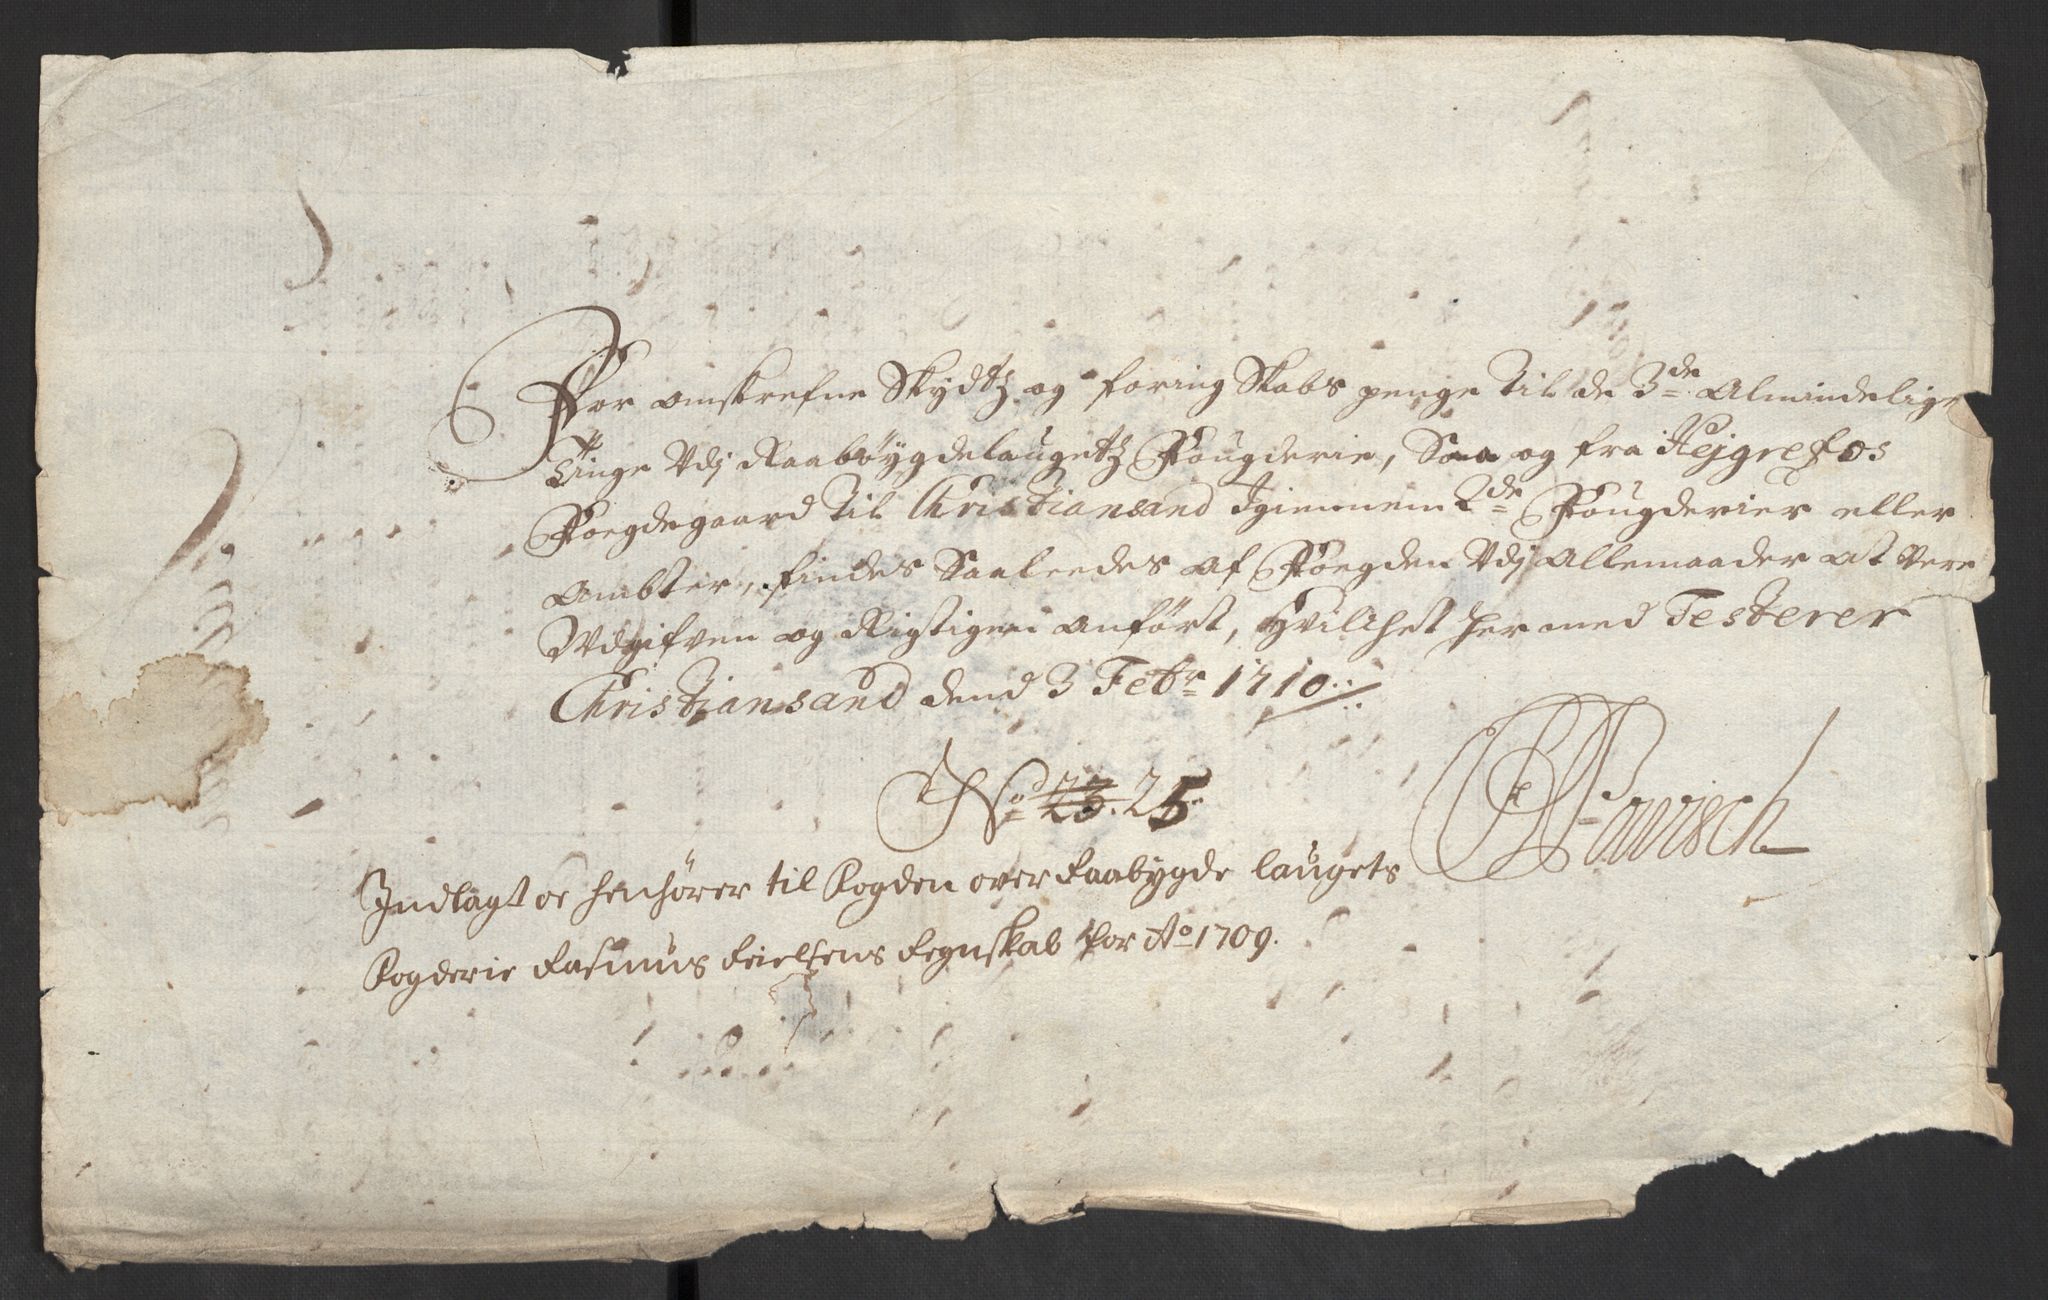 For omskrefne Skydtz og foring Skabs penge til de 3de Almindelige
Tinge Udj Raabøygdelaugetz Fougderie, Saa og fra Hejgrefos
Foegdegaard til Christiansand Igiennem 2de Fougderier eller
Ambter, findes Saaleedes af Foegden Udj Allemaader at vere
Udgifven og Rigtigen anført, Hvilchet hermed Testerer
Christiansand dend 3 Febr 1710
No 23. 25
Indlagt oc henhører til Fogden over Raabygde laugets
Fogderie Rasmus Regnskab for Ao 1709.